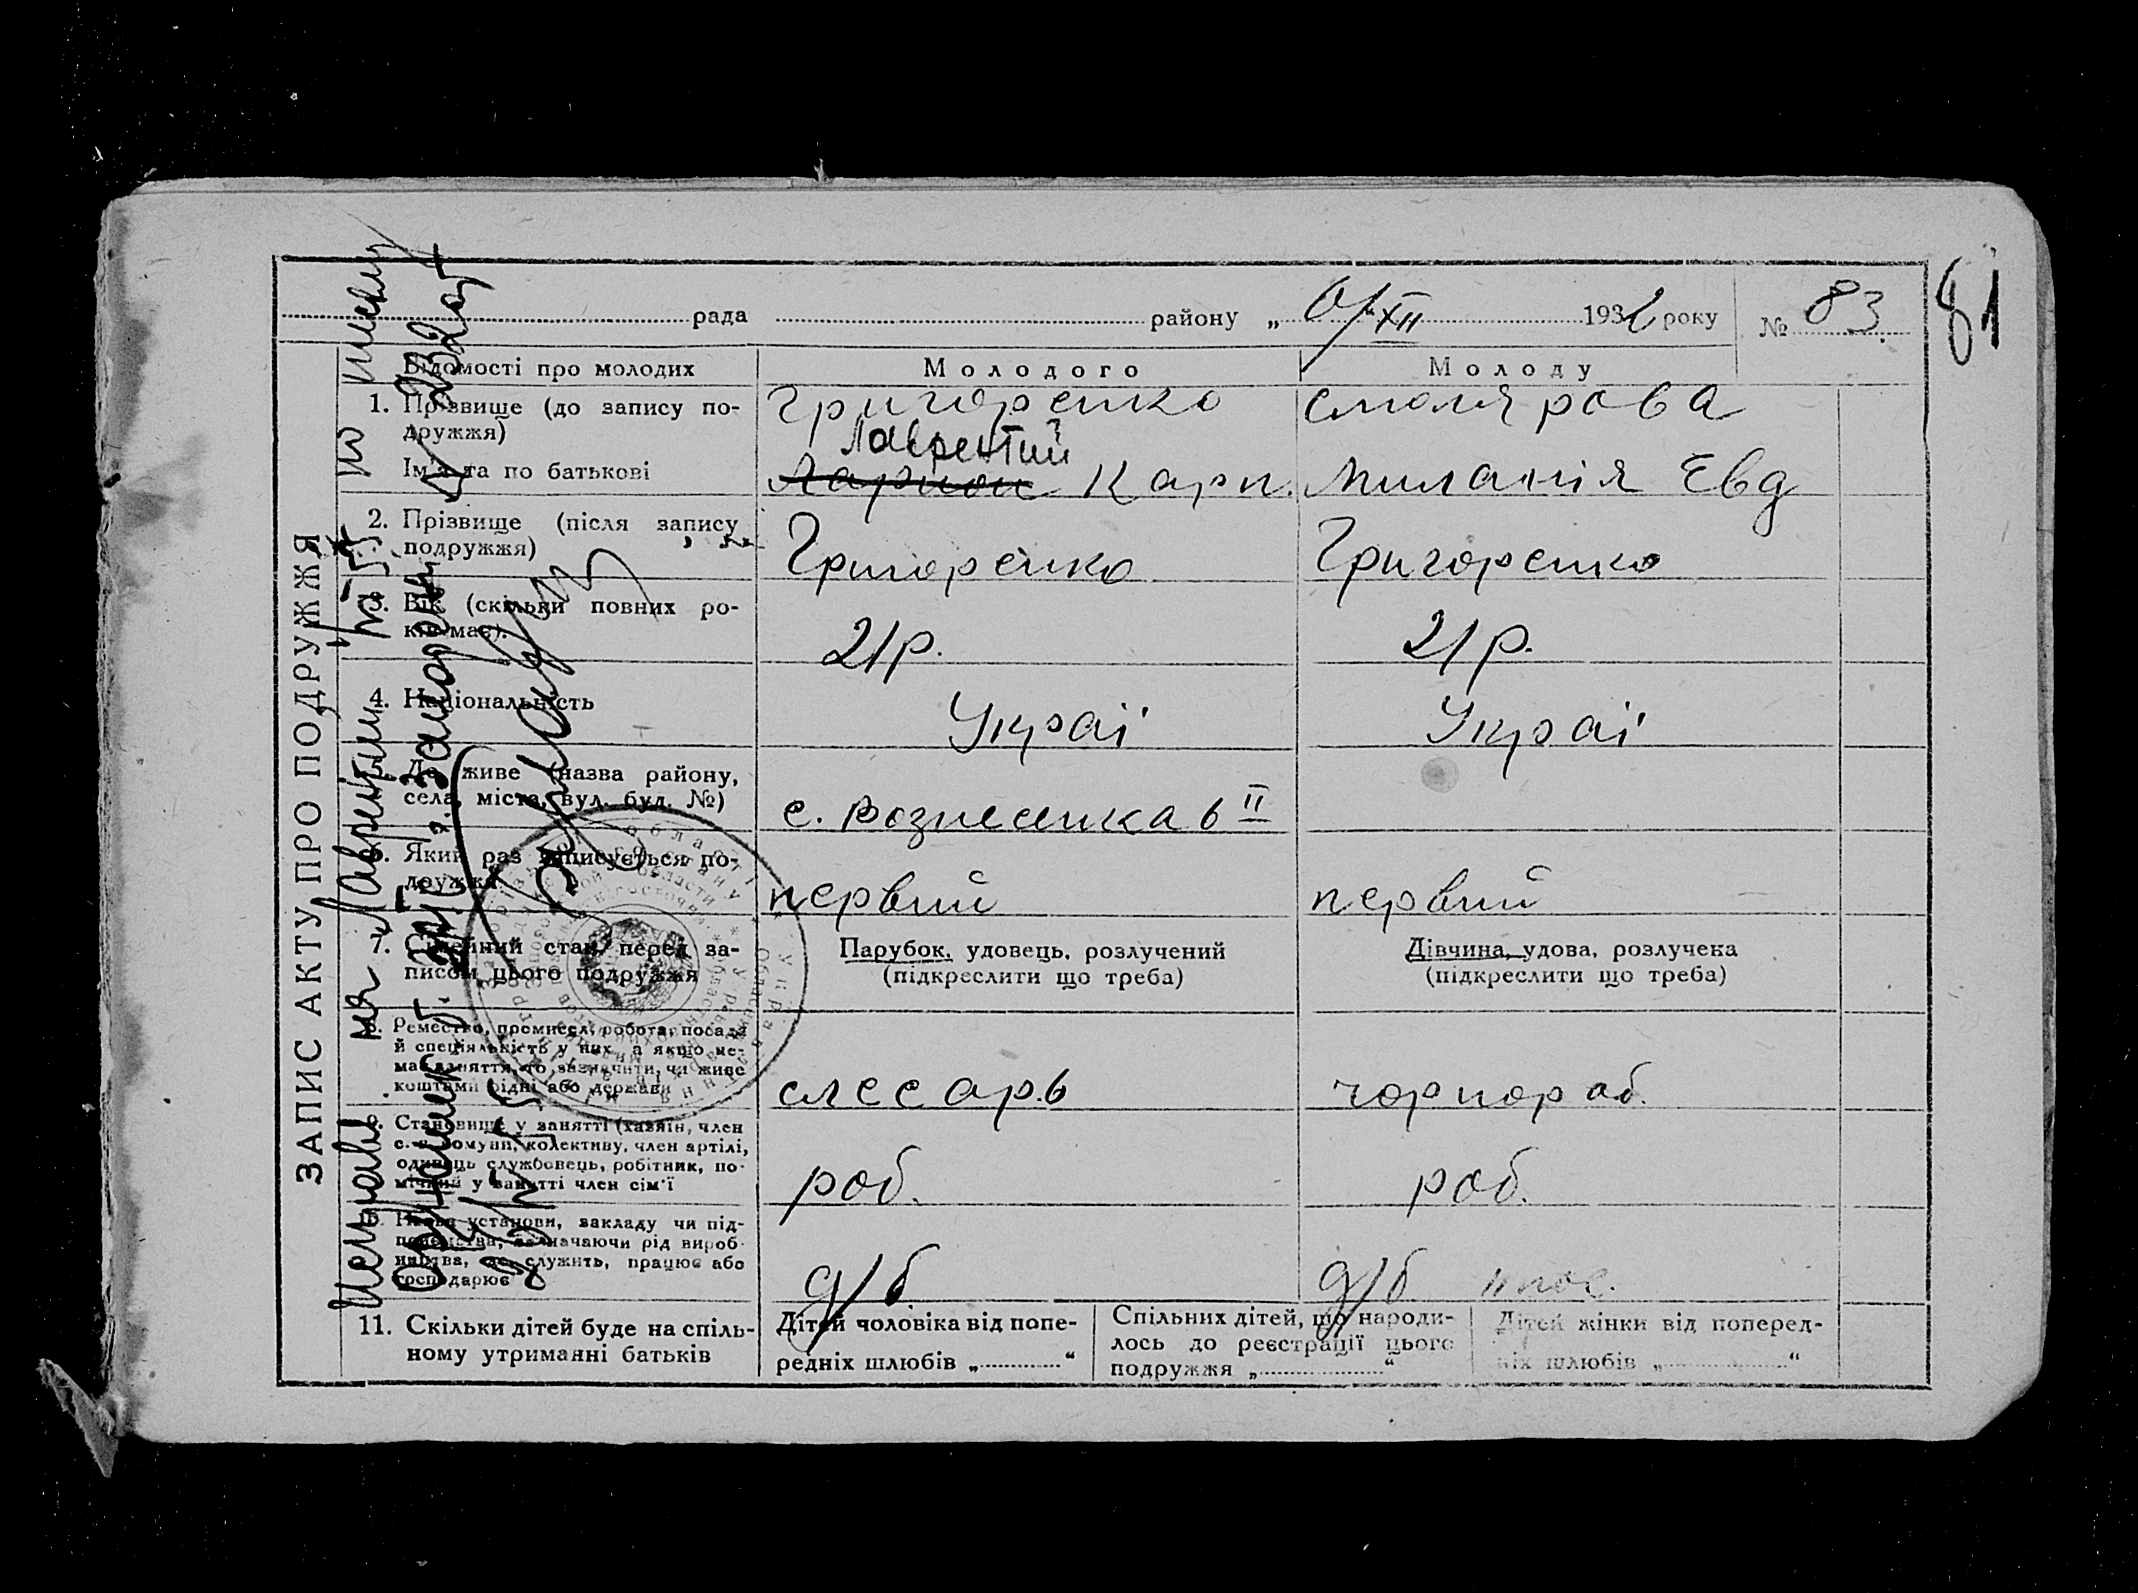 рада району „ /XII 1932 року № 83
81
ЗАПИС АКТУ ПРО ПОДРУЖЖЯ
Відомості про молодих Молодого Молоду
1. Прізвище (до запису по-
дружжя)
Григоренко Смолярова
Лаврентий
Ім'я та по батькові Ларион Карп. Миланія Евд
2. Прізвище (після запису
подружжя)
Григоренко Григоренко
3. Вік (скільки повних ро-
ків має).
21р. 21р.
4. Національність
Украї Украї
Де живе (назва району,
села, міста, вул. буд. №)
с. Вознесенка 6 II
6. Який раз записується по-
дружжя
первий первий
7. Сімейний стан перед за-
писом цього подружжя
Парубок, удовець, розлучений
(підкреслити що треба)
Дівчина, удова, розлучека
(підкреслити що треба)
8. Ремество, промисел, робота, посада
й спеціяльність у них, а якщо не-
має заняття, то зазначити, чи живе
коштами рідні або держави
слесарь чорнораб.
9. Становище у занятті (хазяїн, член
с.-г. комуни, колективу, член артілі,
одинець службовець, робітник, по-
мічний у занятті член сім'ї
роб. роб.
10. Назва установи, закладу чи під-
приємства, зазначаючи рід вироб-
ництва, де служить, працює або
господарює
д/б д/б
11. Скільки дітей буде на спіль-
ному утриманні батьків
Дітей чоловіка від попе-
редніх шлюбів „ “
Спільних дітей, що народи-
лось до реєстрації цього
подружжя „ “
Дітей жінки від поперед-
ніх шлюбів „ “